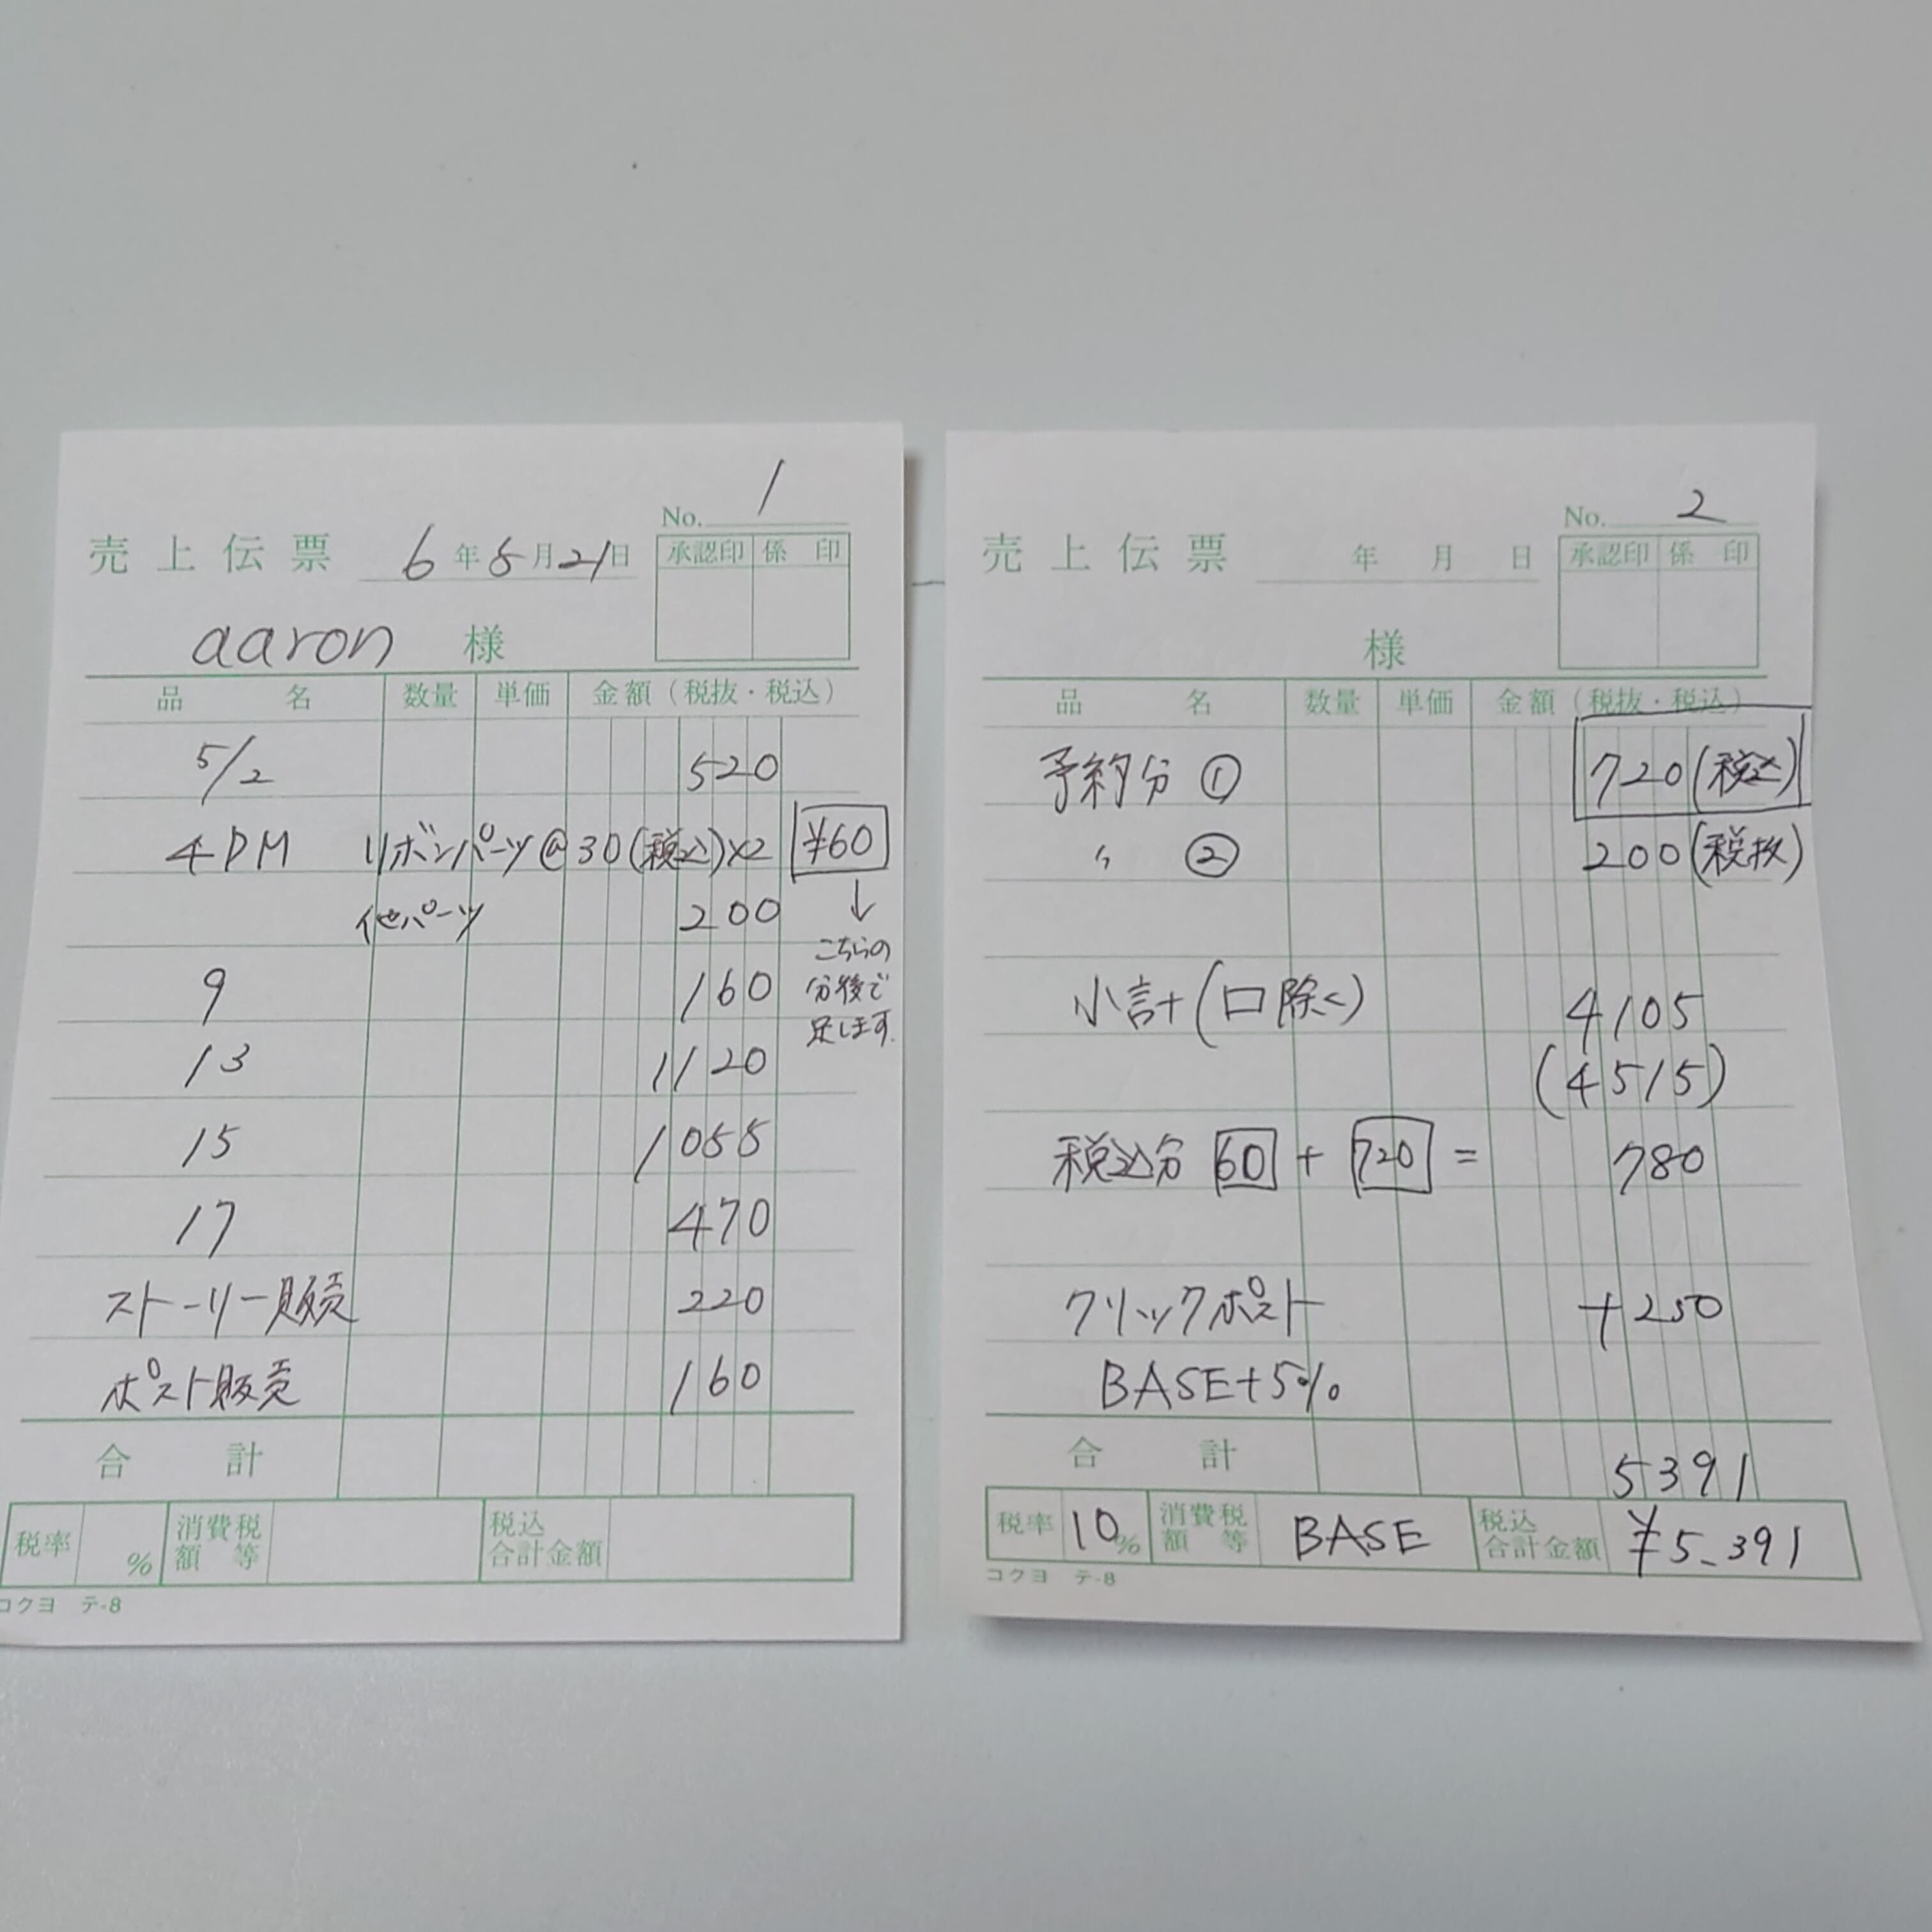 No. 1
売上伝票 6年5月21日
承認印 係印
aaron 様
品名 数量 単価 金額（税抜・税込）
5/2 520
4DM リボンパーツ@30(税込)×2 ¥60
↓
他パーツ 200
こちらの
分後で
足します.
9 160
13 1120
15 1055
17 470
ストーリー販売 220
ポスト販売 160
合計
税率 % 消費税額等 税込合計金額
コクヨ テ-8
No. 2
売上伝票 年 月 日
承認印 係印
様
品名 数量 単価 金額（税抜・税込）
予約分 ① 720(税込)
〃 ② 200(税抜)
小計(口除く) 4105
(4515)
税込分 60 + 720 = 780
クリックポスト +250
BASE+5%
合計 5391
税率 10% 消費税額等 BASE 税込合計金額 ¥5.391
コクヨ テ-8